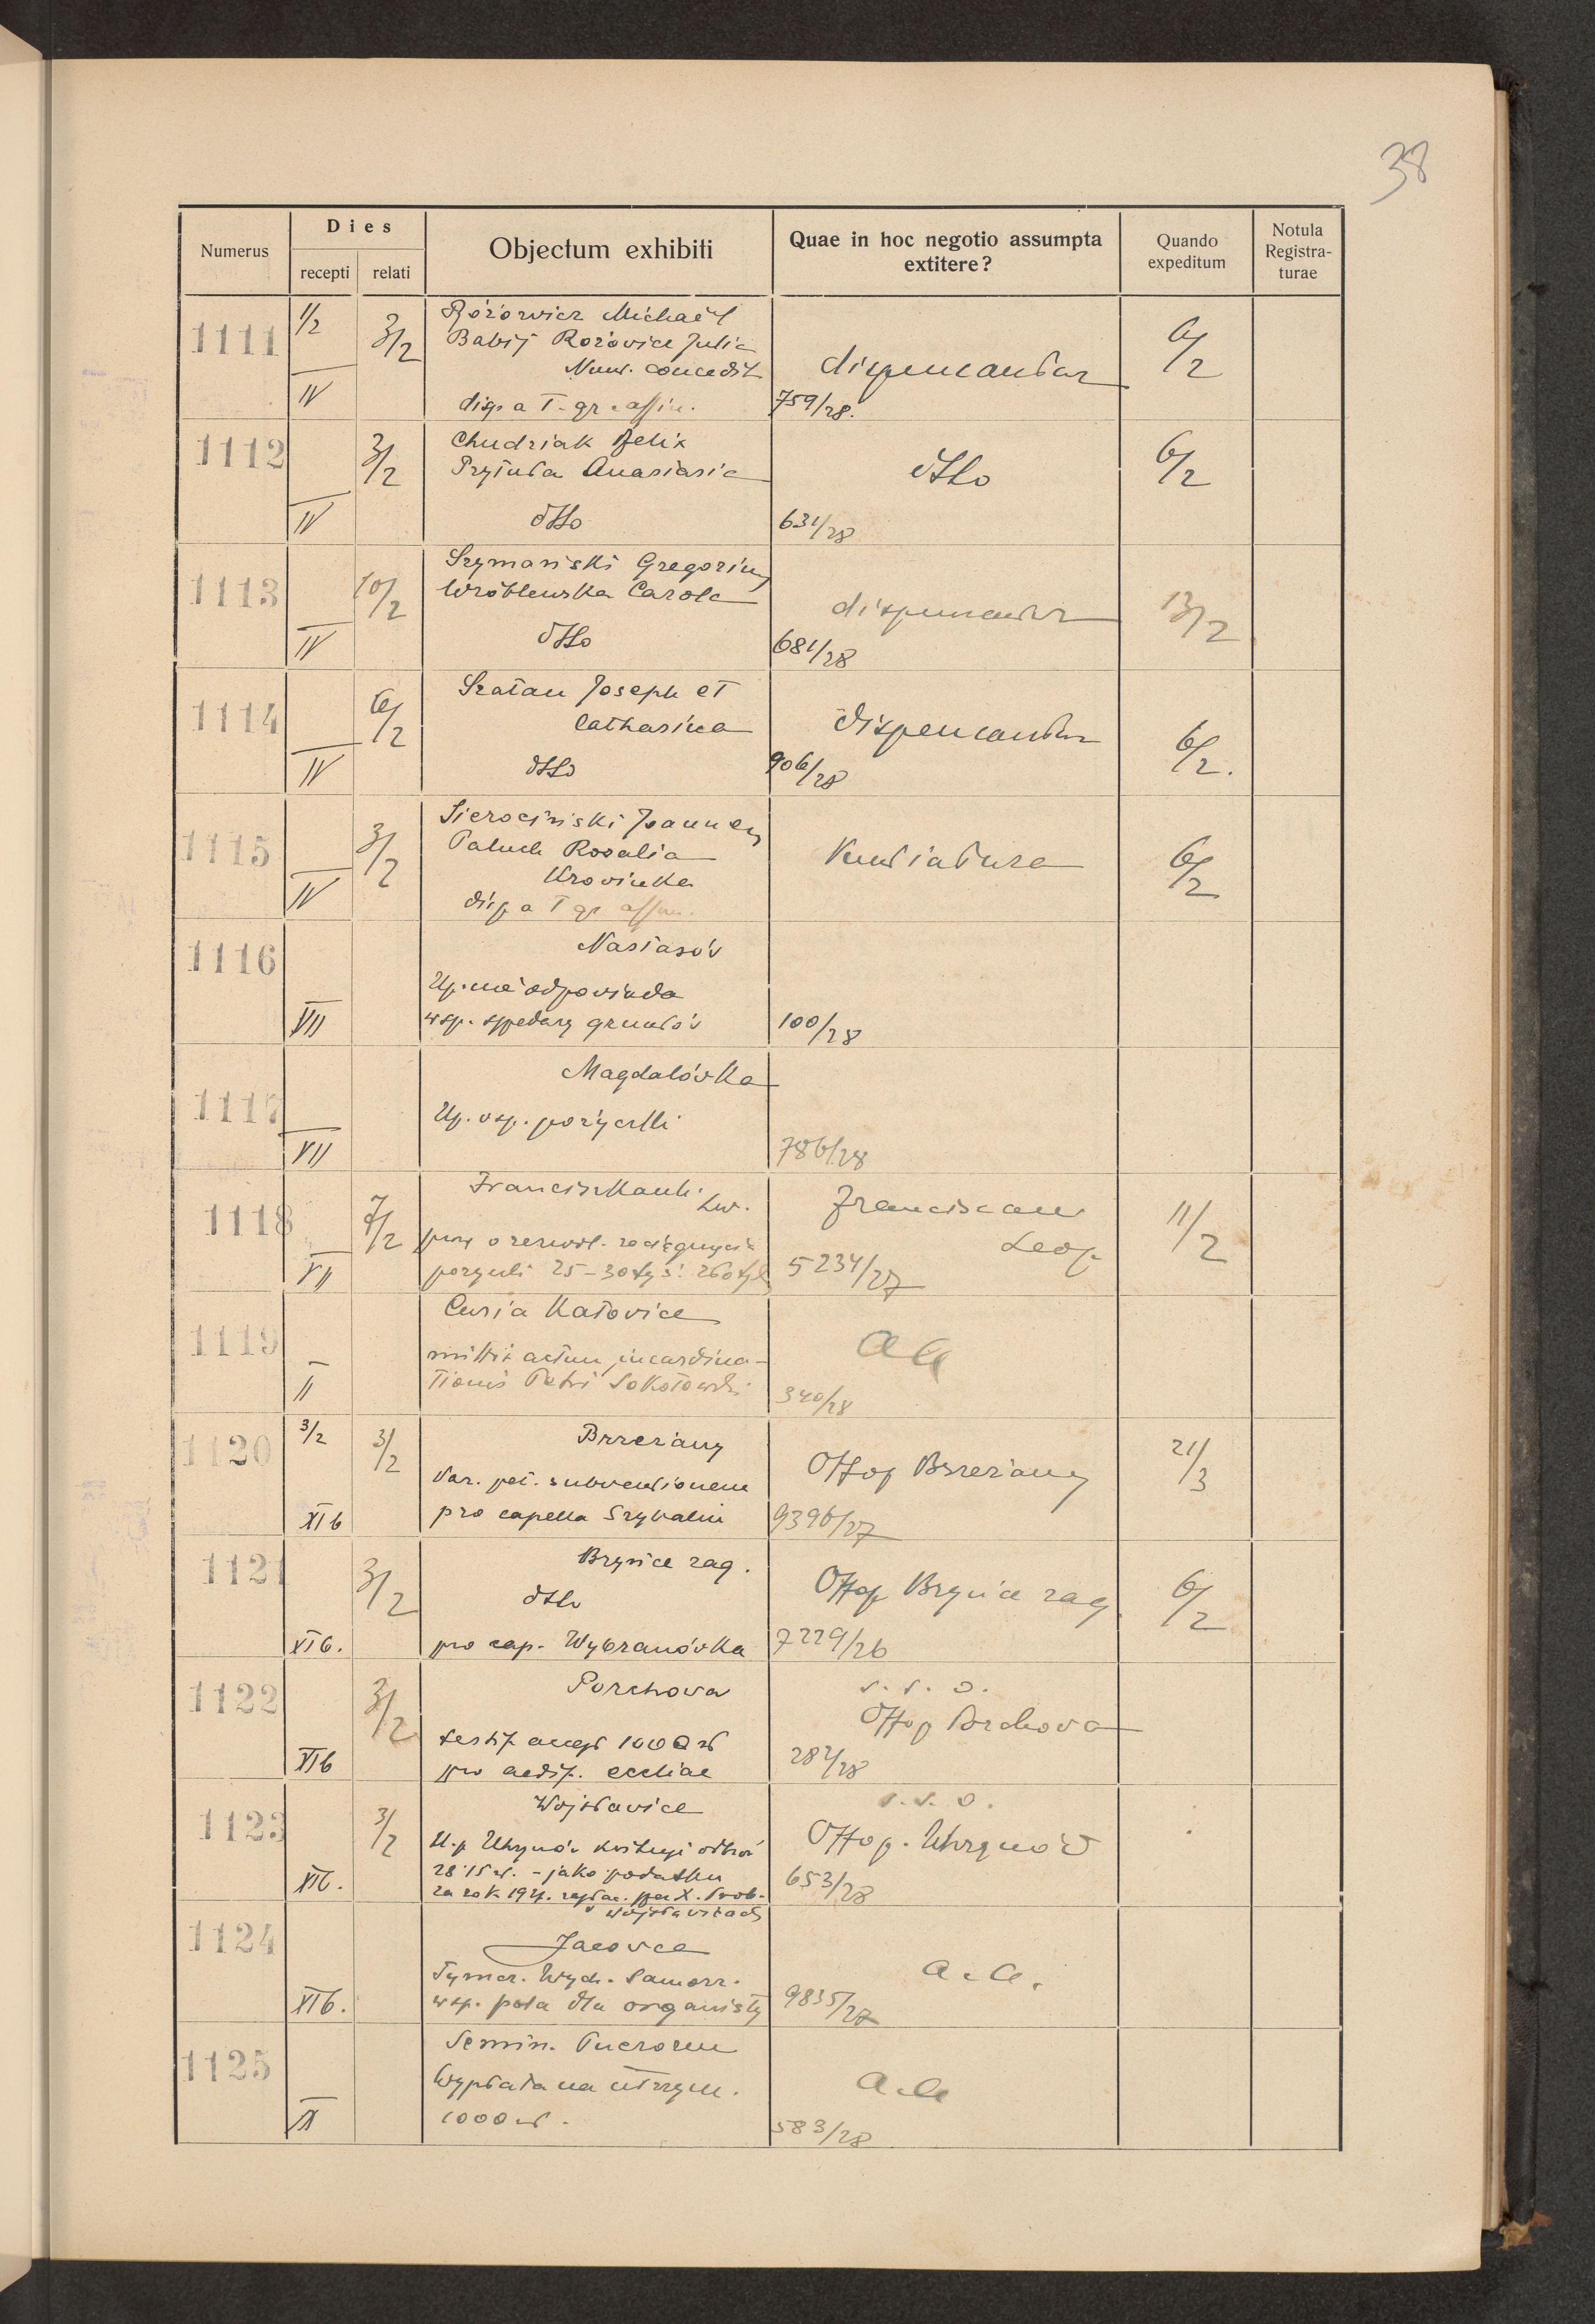 38
Numerus
Dies
recepti
relati
Objectum exhibiti
Quae in hoc negotio assumpta
extitere?
Quando
expeditum
Notula
Registra-
turae
1111
1/2
IV
3/2
Rózowicz Michaël
Babij Rozovice Julia
Nunt. concedit
disp. a I. gr. affin.
dispensantur
759/28.
6/2
1112
IV
3/2
Chudziak Felix
Anastasia
dtto
dtto
631/28
6/2
1113
IV
10/2
Szymański Gregorius
Wróblewska Carola
dtto
dispensantur
681/28
13/2
1114
IV
6/2
Szatan Joseph et
Catharina
dtto
dispensantur
906/28
6/2.
1115
IV
3/2
Sierociński Joannes
Paluch Rosalia
Krovinka
disp a I gr affin.
Nuntiatura
6/2
1116
VII
Nastasów
Up. odpoviada
wsp. gruntów
100/28
1117
VII
Magdalóvka
Up. vsp. pożyczki
786/28
1118
VII
7/2
Franciszkanki Lw.
25-30 tyś.
Franciscan
Leop.
5234/27
11/2
1119
II
Curia Katovice
mittit actum incardina-
tionis Petri Sokołowski
a a
340/28
1120
3/2
XI b
3/2
Brzeżany
Par. pet. subventionem
pro capella Szybalin
Offop Brzeżany
9396/27
21/3
1121
XI b.
3/2
Brynice zag.
dtto
pro cap. Wybranóvka
Offop Brynice zag.
7229/26
6/2
1122
XI b
3/2
Porchova
testif accept 1000 zł
pro aedif. eccliae
v. s. o.
Offop Porchova
282/28
1123
XI b.
3/2
Wojsławice
U.p Uhrynów kwituje odbiór
28·15 zł. - jako podatku
za rok 1927. zapłac. per X. Prob.
v Wojsławicach
v. s. o.
Offop. Uhrynów
653/28
1124
XI b.
Jacovce
Tymcz. Wydz. Samorz.
wsp. pola dla organisty
a. a.
9835/27
1125
X
Semin. Puerorum
Wypłata na utrzym.
1000 zł.
a a
583/28